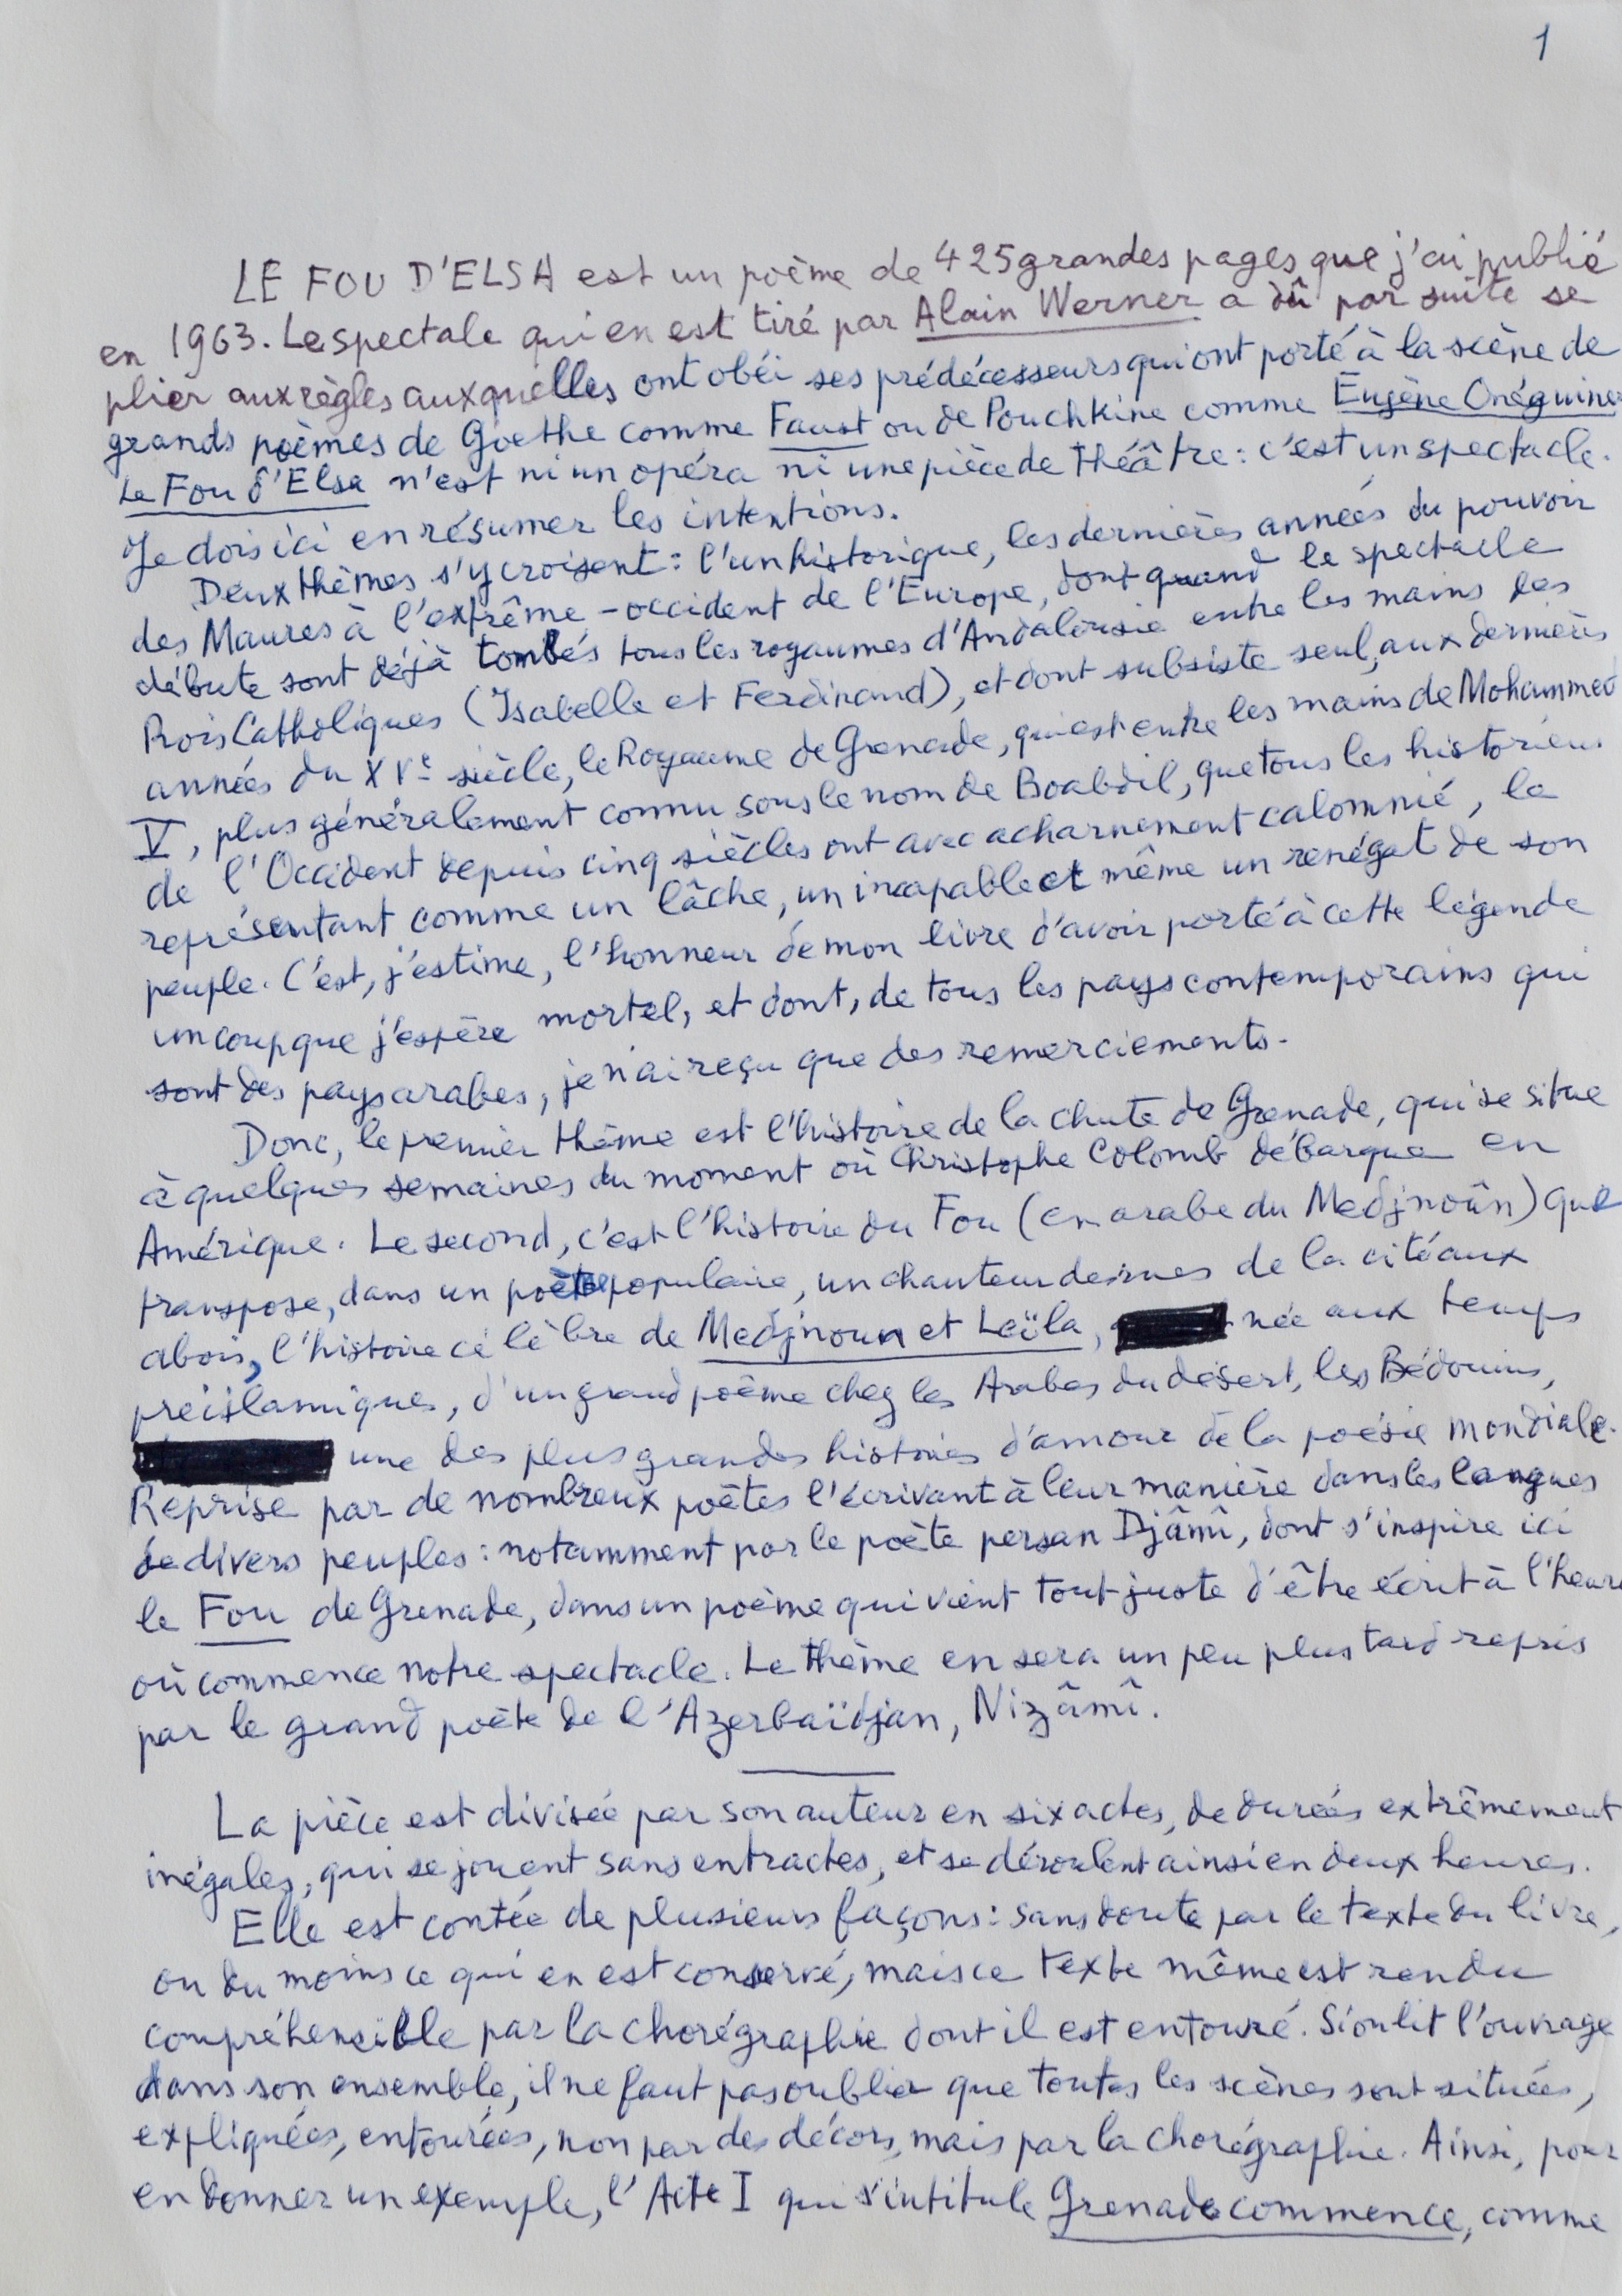 1
LE FOU D'ELSA est un poème de 425 grandes pages que j'ai publié
en 1963. Le spectale qui en est tiré par Alain Werner a dû par suite se
plier aux règles auxquelles ont obéi ses prédécesseurs qui ont porté à la scène de
grands poèmes de Goethe comme Faust ou de Pouchkine comme Eugène Onéguine
Le Fou d'Elsa n'est ni un opéra ni une pièce de théâtre : c'est un spectacle.
Je dois ici en résumer les intentions.
Deux thèmes s'y croisent : l'un historique, les dernières années du pouvoir
des Maures à l'extrême-occident de l'Europe, dont quand le spectacle
débute sont déjà tombés tous les royaumes d'Andalousie entre les mains des
Rois Catholiques (Isabelle et Ferdinand), et dont subsiste seul, aux dernières
années du XVe siècle, le Royaume de Grenade, qui est entre les mains de Mohammed
V, plus généralement connu sous le nom de Boabdil, que tous les historiens
de l'Occident depuis cinq siècles ont avec acharnement calomnié, le
représentant comme un lâche, un incapable et même un renégat de son
peuple. C'est, j'estime, l'honneur de mon livre d'avoir porté à cette légende
un coup que j'espère mortel, et dont, de tous les pays contemporains qui
sont des pays arabes, je n'ai reçu que des remerciements.
Donc, le premier thème est l'histoire de la chute de Grenade, qui se situe
à quelques semaines du moment où Christophe Colomb débarque en
Amérique. Le second, c'est l'histoire du Fou (en arabe du Medjnoûn) que
transpose, dans un poète populaire, un chanteur des rues de la cité aux
abois, l'histoire célèbre de Medjnoun et Leïla, née aux temps
préislamiques, d'un grand poème chez les Arabes du désert, les Bédouins,
une des plus grandes histoires d'amour de la poésie mondiale.
Reprise par de nombreux poètes l'écrivant à leur manière dans les langues
de divers peuples : notamment par le poète persan Djâmî, dont s'inspire ici
le Fou de Grenade, dans un poème qui vient tout juste d'être écrit à l'heure
où commence notre spectacle. Le thème en sera un peu plus tard repris
par le grand poète de l'Azerbaïdjan, Nizâmî.
La pièce est divisée par son auteur en six actes, de durées extrêmement
inégales, qui se jouent sans entractes, et se déroulent ainsi en deux heures.
Elle est contée de plusieurs façons : sans doute par le texte du livre,
ou du moins ce qui en est conservé, mais ce texte même est rendu
compréhensible par la chorégraphie dont il est entouré. Si on lit l'ouvrage
dans son ensemble, il ne faut pas oublier que toutes les scènes sont situées,
expliquées, entourées, non par des décors, mais par la chorégraphie. Ainsi, pour
en donner un exemple, l'Acte I qui s'intitule Grenade commence, comme